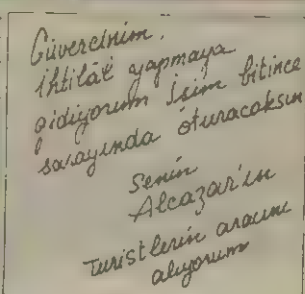 Güvercinim,
ihtilâl yapmaya
gidiyorum İşim bitince
sarayında oturacaksın
Senin
Alcazar'ın
Turistlerin aracını
alıyorum